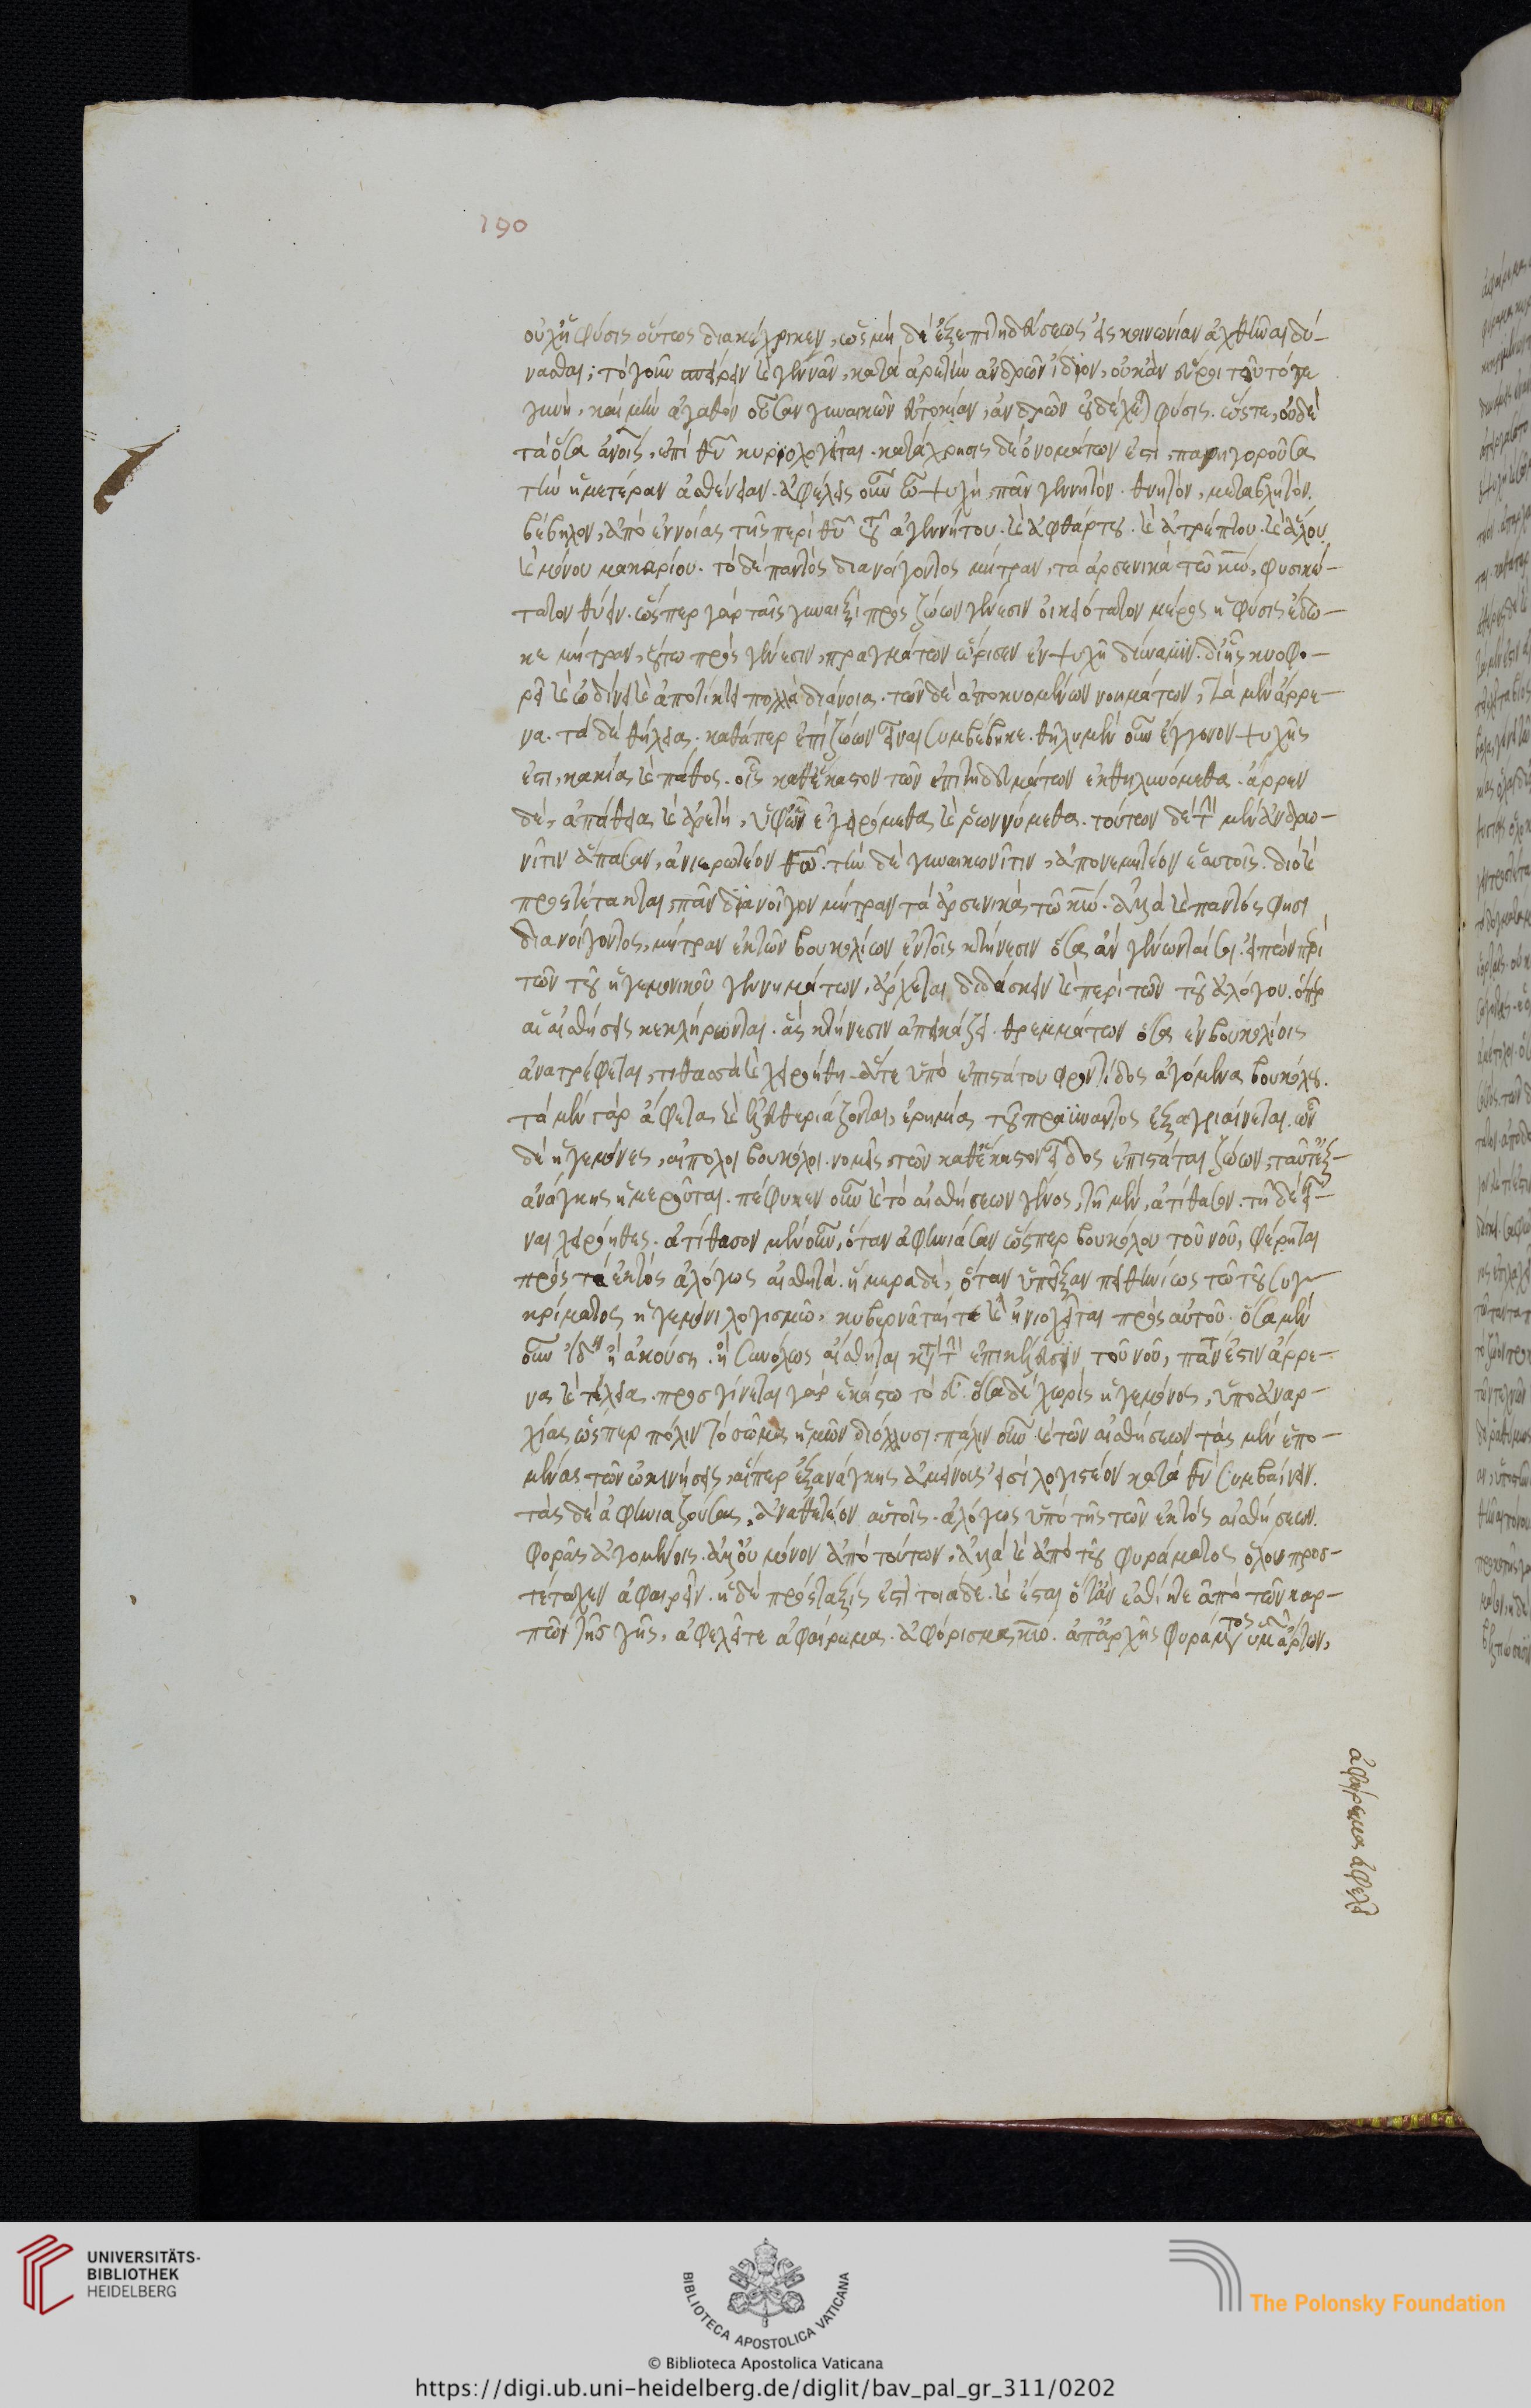 190
οὐχ ἡ φύσις οὕτως διακέκρικεν, ὡς μὴ δὲ ἐξ ἐπιτηδεύσεως εἰς κοινωνίαν ἐλθεῖναι δύ-
νασθαι; τὸ γοῦν σπείρειν καὶ γεννᾶν, κατὰ ἀρετὴν ἀνδρῶν ἴδιον, οὐκ ἂν εὕροι τοῦτό γε
γυνή, καὶ μὴν ἀγαθὸν οὖσαν γυναικῶν εὐτοκίαν, ἀνδρῶν οὐ δέχεται φύσις. ὥστε, οὐδὲ
τὰ ὅσα ἀνοις, ἐπὶ θυ κυριολογεῖται. κατάχρησις δὲ ὀνομάτων ἐστὶ, παρηγοροῦσα
τὴν ἡμετέραν ἀσθένειαν. ἀφέλεις οὖν ὦ ψυχὴ, πᾶν γεννητὸν. θνητὸν, μεταβλητὸν.
βέβηλον, ἀπὸ ἐννοίας τῆς περὶ θυ τοῦ ἀγεννήτου. καὶ ἀφθάρτου. καὶ ἀτρέπτου. καὶ ἁγίου.
καὶ μόνου μακαρίου. τὸ δὲ παντὸς διανοίγοντος μήτραν, τὰ ἀρσενικὰ τῶ κω, φυσικώ-
τατον θύειν. ὥσπερ γὰρ ταῖς γυναιξὶ πρὸς ζώων γένεσιν οἰκειότατον μέρος ἡ φύσις ἔδω-
κε μήτραν, οὕτω πρὸς γένεσιν, πραγμάτων ὥρισεν ἐν ψυχῇ δύναμιν. δι' ἧς κυοφο-
ρεῖ καὶ ὠδίνει καὶ ἀποτίκτει πολλὰ διάνοια. τῶν δὲ ἀποκυομένων νοημάτων, τὰ μὲν ἄρρε-
να. τὰ δὲ θήλεια. καθάπερ ἐπὶ ζώων εἶναι συμβέβηκε. θῆλυ μὲν οὖν ἔγγονον ψυχῆς
ἐστι, κακία καὶ πάθος. οἷς καθ' ἕκαστον τῶν ἐπιτηδευμάτων ἐκθηλυνόμεθα. ἄρρεν
δὲ, ἀπάθεια καὶ ἀρετή, ὑφ' ὧν ἐγειρόμεθα καὶ ῥωννύμεθα. τούτων δὲ τὴν μὲν ἀνδρω-
νῖτιν ἅπασαν, ἀνιερωτέον θω. τὴν δὲ γυναικωνῖτιν, ἀπονεμητέον ἑαυτοῖς. διὸ καὶ
προστέτακται, πᾶν διανοῖγον μήτραν τὰ ἀρσενικὰ τῶ κω. ἀλλὰ καὶ παντὸς φησι
διανοίγοντος, μήτραν ἐκ τῶν βουκολίων ἐν τοῖς κτήνεσιν ὅσα ἂν γένωνταί σοι. εἰπὼν περὶ
τῶν τοῦ ἡγεμονικοῦ γεννημάτων, ἄρχεται διδάσκειν καὶ περὶ τῶν τοῦ ἀλόγου. ὅπερ
αἱ αἰσθήσεις κεκλήρωνται. ἃς κτήνεσιν ἀπεικάζει. θρεμμάτων ὅσα ἐν βουκολίοις
ἀνατρέφεται, τιθασὰ καὶ χειροήθη. ἅτε ὑπὸ ἐπιστάτου φροντίδος ἀγόμενα βουκόλου.
τὰ μὲν γὰρ ἄφετα καὶ ἐλευθεριάζοντα, ἐρημία τοῦ πραΰνοντος ἐξαγριαίνεται. ὧν
δὲ ἡγεμόνες, αἰπόλοι βουκόλοι. νομεῖς, τῶν καθ' ἕκαστον εἶδος ἐπιστάται ζώων, ταῦτ' ἐξ-
ανάγκης ἡμεροῦται. πέφυκεν οὖν καὶ τὸ αἰσθήσεων γένος, τῇ μὲν, ἀτίθασον. τῇ δὲ εἶ-
ναι χειρόηθες. ἀτίθασον μὲν οὖν, ὅταν ἀφηνιάσαν ὥσπερ βουκόλου τοῦ νοῦ, φέρηται
πρὸς τὰ ἐκτὸς ἀλόγως αἰσθητά. ἥμερα δὲ, ὅταν ὑπεῖξαν πειθηνίως τῶ τοῦ συγ-
κρίματος ἡγεμόνι λογισμῶ, κυβερνᾶταί τε καὶ ἡνιοχεῖται πρὸς αὐτοῦ. ὅσα μὲν
οὖν ἴδῃ ἢ ἀκούσῃ. ἢ συνόλως αἴσθηται κατὰ τὴν ἐπικέλευσιν τοῦ νοῦ, πάντ' ἐστὶν ἄρρε-
να καὶ τέλεια. προσγίνεται γὰρ ἑκάστω τὸ εὖ. ὅσα δὲ χωρὶς ἡγεμόνος, ὑπ' ἀναρ-
χίας, ὥσπερ πόλιν τὸ σῶμα ἡμῶν διόλλυσι. πάλιν οὖν καὶ τῶν αἰσθήσεων τὰς μὲν ἑπο-
μένας τῶ νῶ κινήσεις, αἵπερ ἐξανάγκης ἀμείνους εἰσὶ λογιστέον κατὰ θν συμβαίνειν.
τὰς δὲ ἀφηνιαζούσας, ἀναθετέον αὑτοῖς. ἀλόγως ὑπὸ τῆς τῶν ἐκτὸς αἰσθήσεων.
φορᾶς ἀγομένοις. ἀλλ' οὐ μόνον ἀπὸ τούτων, ἀλλὰ καὶ ἀπὸ τοῦ φυράματος ὅλου προσ-
τέταχεν ἀφαιρεῖν. ἡ δὲ πρόσταξις ἐστὶ τοιάδε. καὶ ἔσται ὅταν ἐσθίητε ἀπὸ τῶν καρ-
πῶν τῆς γῆς, ἀφελεῖτε ἀφαίρεμα. ἀφόρισμα κω. ἀπαρχὴν φυράματος ὑμῶν ἄρτον,
ἀφαίρεμα ἀφελεῖ
UNIVERSITÄTS-
BIBLIOTHEK
HEIDELBERG
BIBLIOTECA APOSTOLICA VATICANA
The Polonsky Foundation
© Biblioteca Apostolica Vaticana
https://digi.ub.uni-heidelberg.de/diglit/bav_pal_gr_311/0202